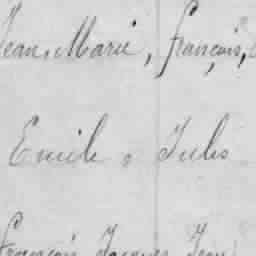 Jean, Marie, françois,
Emile, Jules
françois Jacques Jean